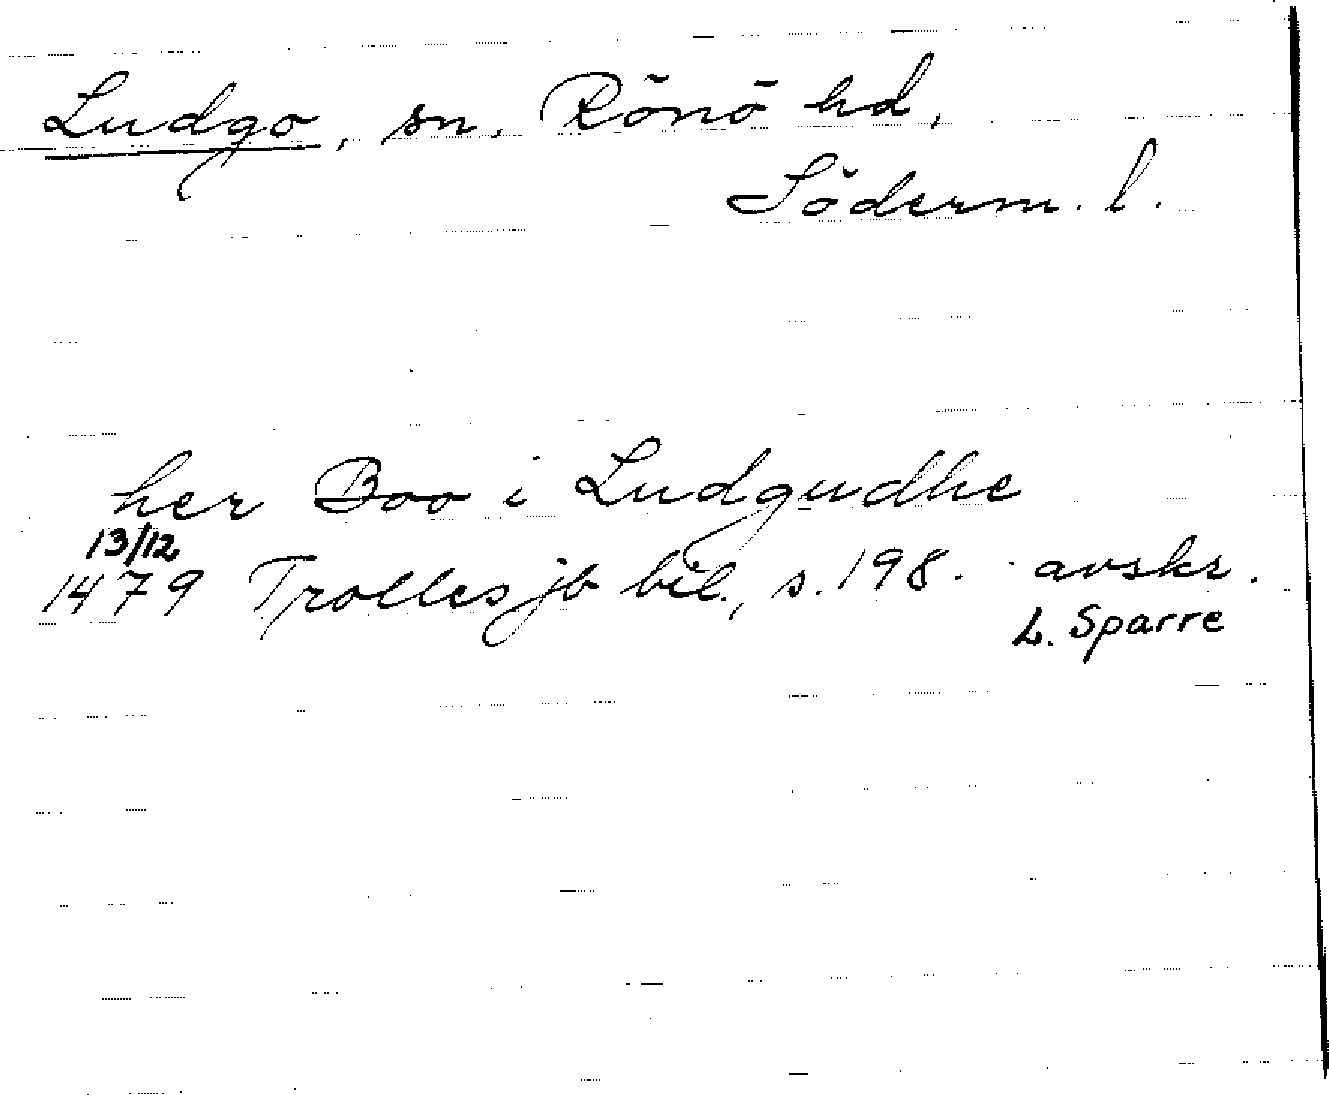 Ludgo, sn. Rönö hd,
Söderm. l.
her Boo i Ludgudhe
13/12
1479 Trolles jb bil., s. 198. avskr.
L. Sparre